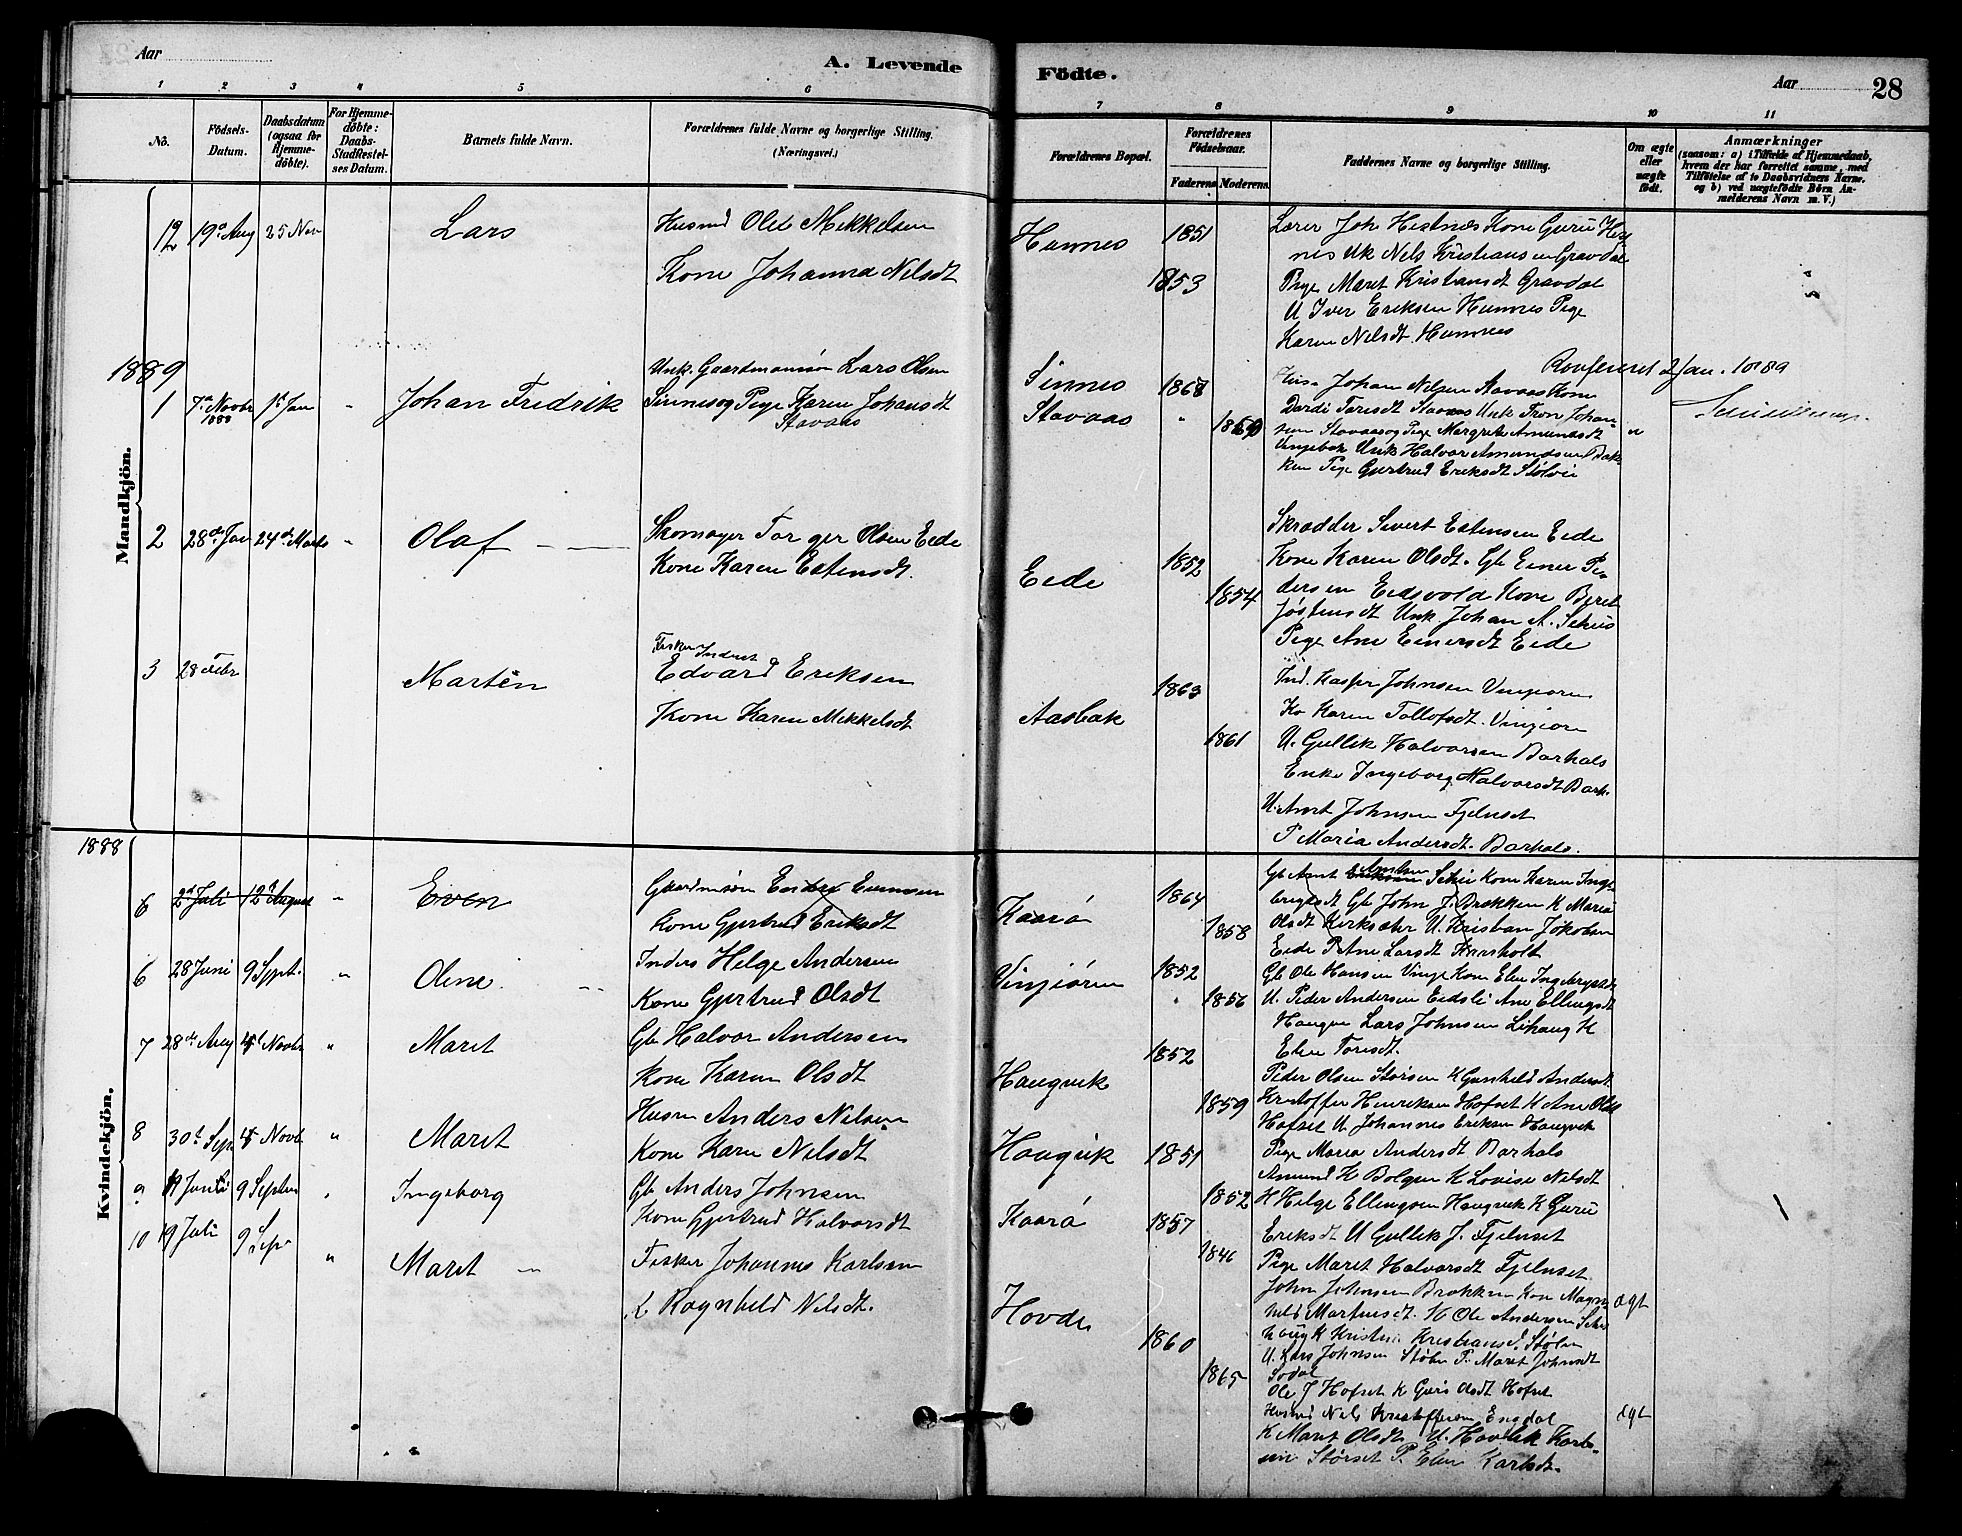 Aar
A. Levende
Födte.
Aar
28
1 2 3 4 5 6 7 8 9 10 11
No.
Födsels-
Datum.
Daabsdatum
(ogsaa for
Hjemme-
döbte).
For Hjemme-
döbte:
Daabs-
Stadfæstel-
ses Datum.
Barnets fulde Navn.
Forældrenes fulde Navne og borgerlige Stilling.
(Næringsvei.)
Forældrenes Bopæl.
Forældrenes
Födselsaar.
Faderens
Moderens
Faddernes Navne og borgerlige Stilling.
Om ægte
eller
uægte
født.
Anmærkninger
(saasom: a) i Tilfælde af Hjemmedaab,
hvem der har forrettet samme, med
Tilföielse af to Daabsvidners Navne,
og b) ved uægtefödte Börn An-
melderens Navn m. V.)
Mandkjön.
12 19de Aug 25 Nov Lars
Husmd Ole Mikkelsen
Kone Johanna Nilsdt
Hamnes 1851
1853
Lærer Joh Hestnæs Kone Guru Hest
nes Uk Nils Kristiansen Gravdal
Pige Maret Kristiansdt Gravdal
U Iver Eriksen Hamnes Pige
Karen Nilsdt Hamnes
1889
1 7de Novbr 1888 1st Jan " Johan Fredrik
Unk. Gaardmansøn Lars Olsen
Sinnes og Pige Karen Johansdt
Stavaas
Sinnes
Stavaas
1868
"
Johan Nilsen Stavaas Kone
Dordi Toresdt Stavaas Unk Tron Johan-
sen Stavaas og Pige Margrete Amundsdt
Vingebak Unk Halvor Amundsen Bak
ken Pige Gjertrud Eriksdt Stølvie
u
2 Jan. 1889
2 28de Jan 24de Marts " Olaf
Skomager Torger Olsen Eide
Kone Karen Estensdt.
Eide
1852
1854
Skrædder Sivert Estensen Eide
Kone Karen Olsdt. Gb Einer Pe-
dersen Eidsvold Kone Beret
Jøstensdt Unk. Johan A. Schei
Pige Ane Einersdt Eide
3 28 Febr Martin
Fisker Inderst
Edvard Eriksen
Kone Karen Mikkelsdt
Aasbak
1863
1861
Ind. Kasper Johnsen Vingiøren
Ko Karen Tollofsdt. Vingiøren
U. Gullik Halvorsen Barhals
Enke Ingeborg Halvorsdt Barh.
U. Arnt Johnsen Fjelnset
P Maria Andersdt. Barhals.
1888
Kvindekjön.
6 2d Juli 12t August " Even
Gaardmsøn Einar Evensen
Kone Gjertrud Eriksdt
Kaarø
1864
1858
Gb Arnt Arntsen Schei Kone Karen Inge-
brigtsdt Gb John J. Brækken K Maria
Olsdt Kirksæter U. Kristian Jakobsen
Eide P Ane Larsdt Kaarholt
6 28 Juni 9 Sept. " Oline
Inders Helge Andersen
Kone Gjertrud Olsdt
Vingiøren
1852
1856
Gb Ole Hansen Vinge Kone Elen Ingebrigtsdt
U. Peder Andersen Eidsli Ane Ellingsdt
Haugen Lars Johnsen Lihaug K
Elen Toresdt.
7 28de Aug 4t Novbr " Maret
Gb Halvor Andersen
Kone Karen Olsdt
Haugvik
1852
1859
Peder Olsen Storsen K Gunhild Andersdt
Kristoffer Henriksen Hofset K Ane Olsdt
Hofset U. Johannes Eriksen Haugvik
Pige Maria Andersdt Barhals
8 30t Sept 4t Novb " Maret
Husm Anders Nilsen
Kone Karen Nilsdt
Haugvik
1851
1852
Amund H Bolgen K Lovise Nilsdt
H Helge Ellingsen Haugvik K Guru
Eriksdt U Gullik J. Fjelnset
Pige Maret Halvorsdt Fjelnset
9 9 Septem " Ingeborg
Gb Anders Johnsen
Kone Gjertrud Halvorsdt
Kaarø
1857
1846
John Johnsen Brækken Kone Magn-
hild Martinsdt. H Ole Andersen Schei
haug K Kristin Kristiansd. Stølen
U. Lars Johnsen Stølen P. Maret Johnsdt
Sodal
ægt
10 19 Juli 9 Sept " Maret
Fisker Johannes Karlsen
K Ragnhild Nilsdt.
Hovde
1860
1865
Ole J Hofset K Guri Olsdt Hofset
Husmd Nils Kristoffersen Engdal
K Maret Olsdt U. Hovlek Karl-
sen Størset P. Elen Karlsdt.
ægt